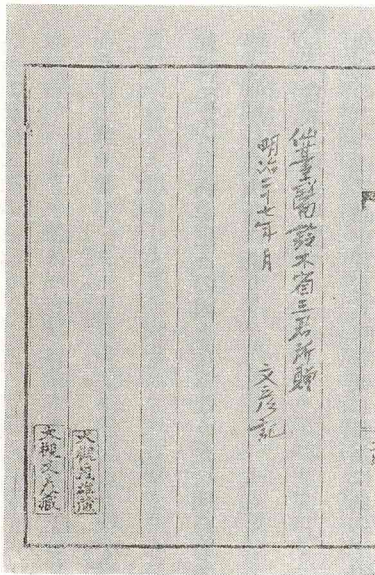 仙臺醫師鈴木省三君所贈
明治二十七年月
文彦記
大槻茂雄蔵
大槻文彦蔵